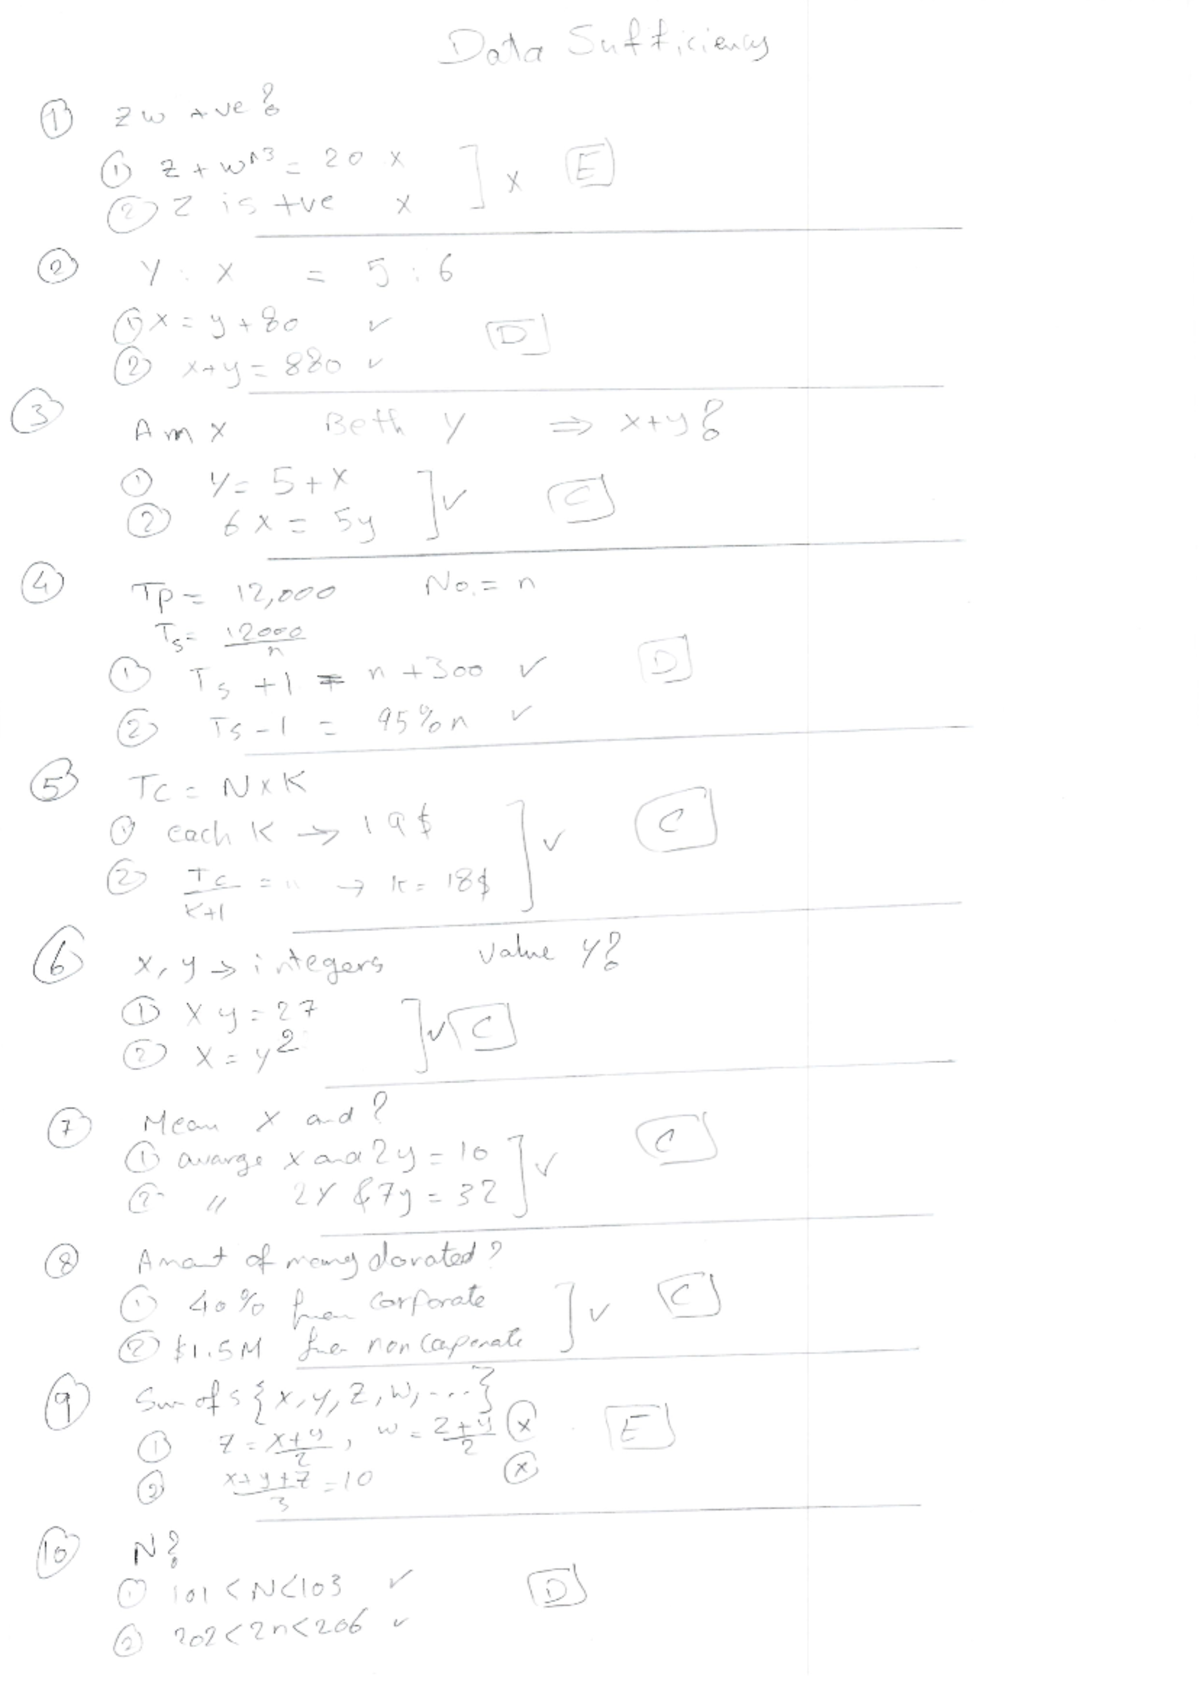 Data Sufficiency
① zw +ve?
① z + w^3 = 20 x
② z is +ve x ] x E
② Y : X = 5 : 6
① x = y + 80 ✓ D
② x+y = 880 ✓
③ Am X Beth Y ⇒ x+y?
① Y = 5 + X
② 6x = 5y ] ✓ C
④ Tp = 12,000 No. = n
Ts = 12000/n
① Ts + 1 = n + 300 ✓ D
② Ts - 1 = 95% n ✓
⑤ Tc = N x K
① each K → 19$
② Tc/K+1 = " → K = 18$ ] ✓ C
⑥ x, y → integers value y?
① x y = 27
② x = y2 ] ✓ C
⑦ Mean x and ?
① avarge x and 2y = 10
② " 2x & 7y = 32 ] ✓ C
⑧ Amout of money donated?
① 40% from corporate
② $1.5M from non corporate ] ✓ C
⑨ Sum of s {x, y, z, w, ...}
① z = x+y/2 , w = z+y/2 x E
② x+y+z/3 = 10 x
⑩ N?
① 101 < N < 103 ✓ D
② 202 < 2n < 206 ✓